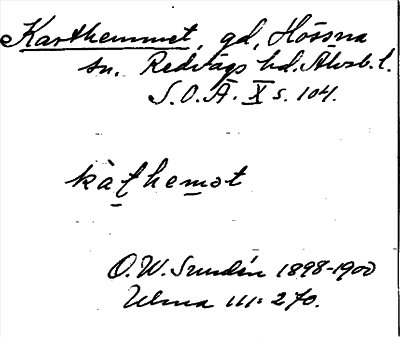 Karthemmet, gd, Hössna
sn. Redvägs hd. Älvsb. l.
S.O.Ä. X s. 104.
kàṭhemot
O.W. Sundén 1898-1900
Ulma 111:270.